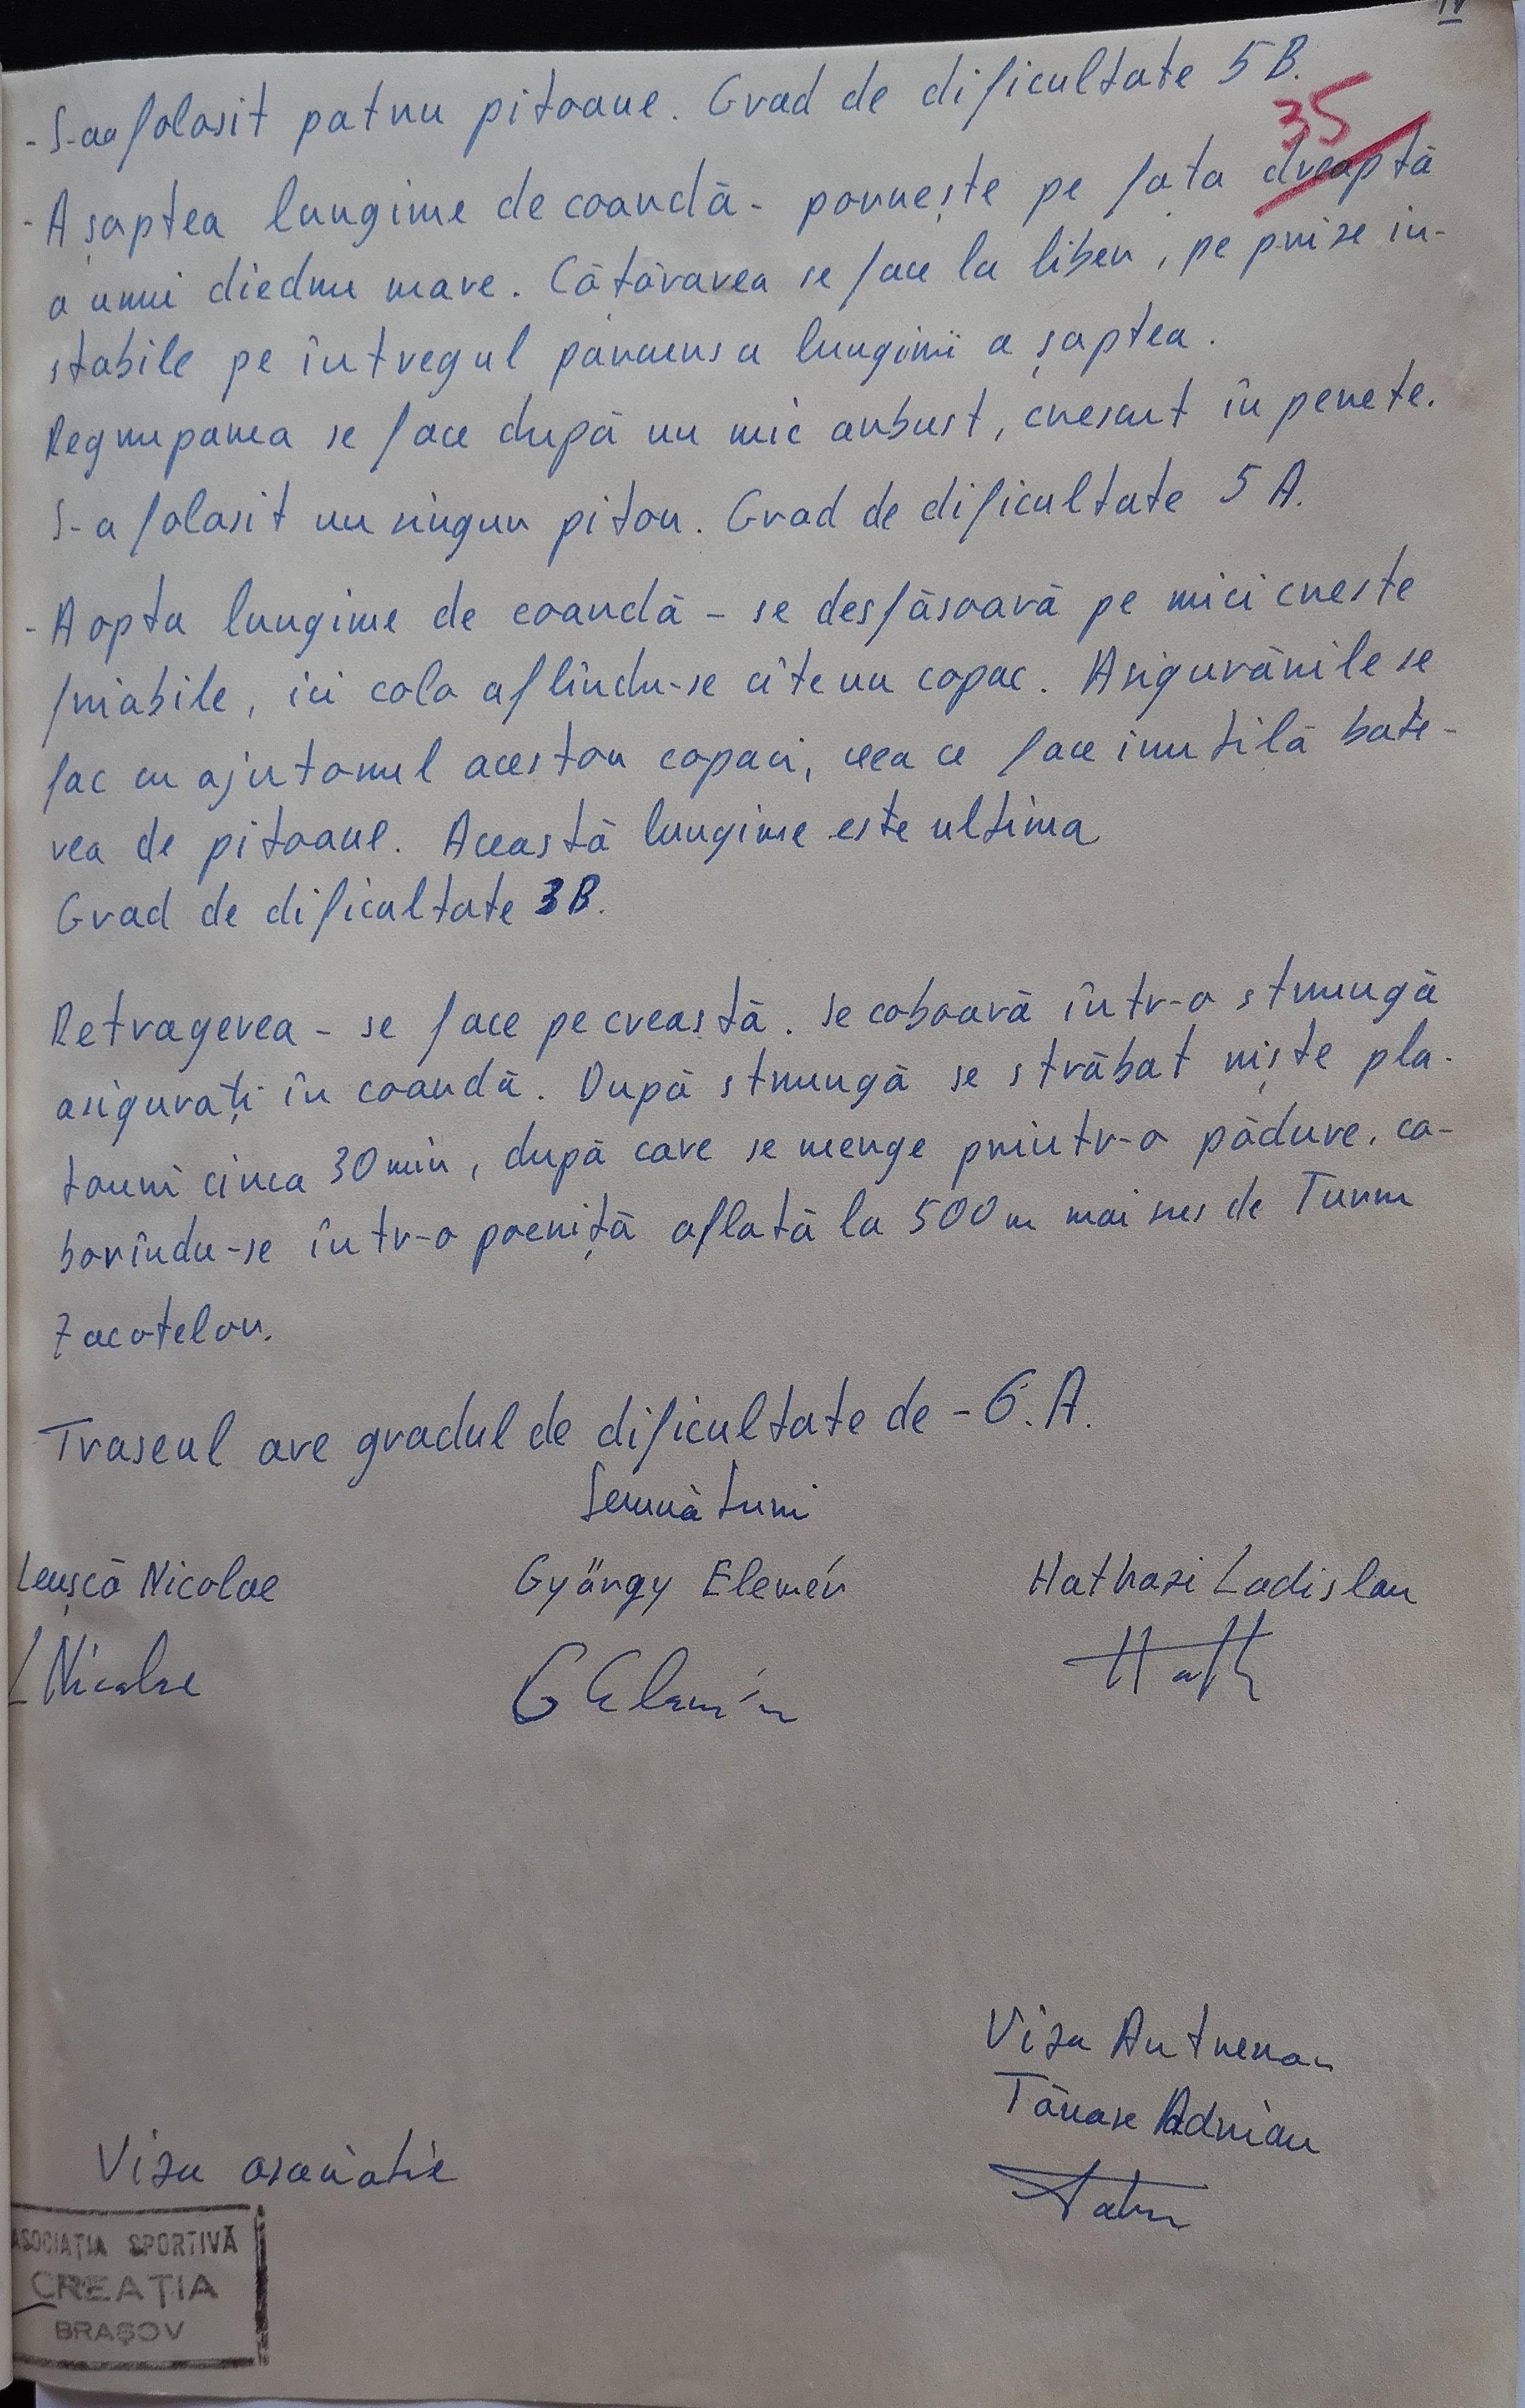 IV
- S-au folosit patru pitoane. Grad de dificultate 5 B.
35
- A șaptea lungime de coardă - pornește pe fața dreaptă
a unui diedru mare. Cățărarea se face la liber, pe prize in-
stabile pe întregul parcurs a lungimii a șaptea.
Regruparea se face după un mic arbust, crescut în perete.
S-a folosit un singur piton. Grad de dificultate 5 A.
- A opta lungime de coardă - se desfăsoară pe mici creste
friabile, ici colo aflîndu-se cîte un copac. Asigurările se
fac cu ajutorul acestor copaci, ceea ce face inutilă bate-
rea de pitoane. Această lungime este ultima
Grad de dificultate 3B.
Retragerea - se face pe creastă. Se coboară într-o strungă
asigurați în coardă. După strungă se străbat niște pla-
touri circa 30 min, după care se merge printr-o pădure, co-
borîndu-se într-o poeniță aflată la 500 m mai sus de Turm
Zacotelor.
Traseul are gradul de dificultate de - 6.A.
Semnături
Leușcă Nicolae György Elemér Hathazi Ladislau
L Nicolae G Elemér Hath
Viza Antrenor
Tănase Adrian
Viza asociatie
ASOCIAȚIA SPORTIVĂ
CREAȚIA
BRAȘOV